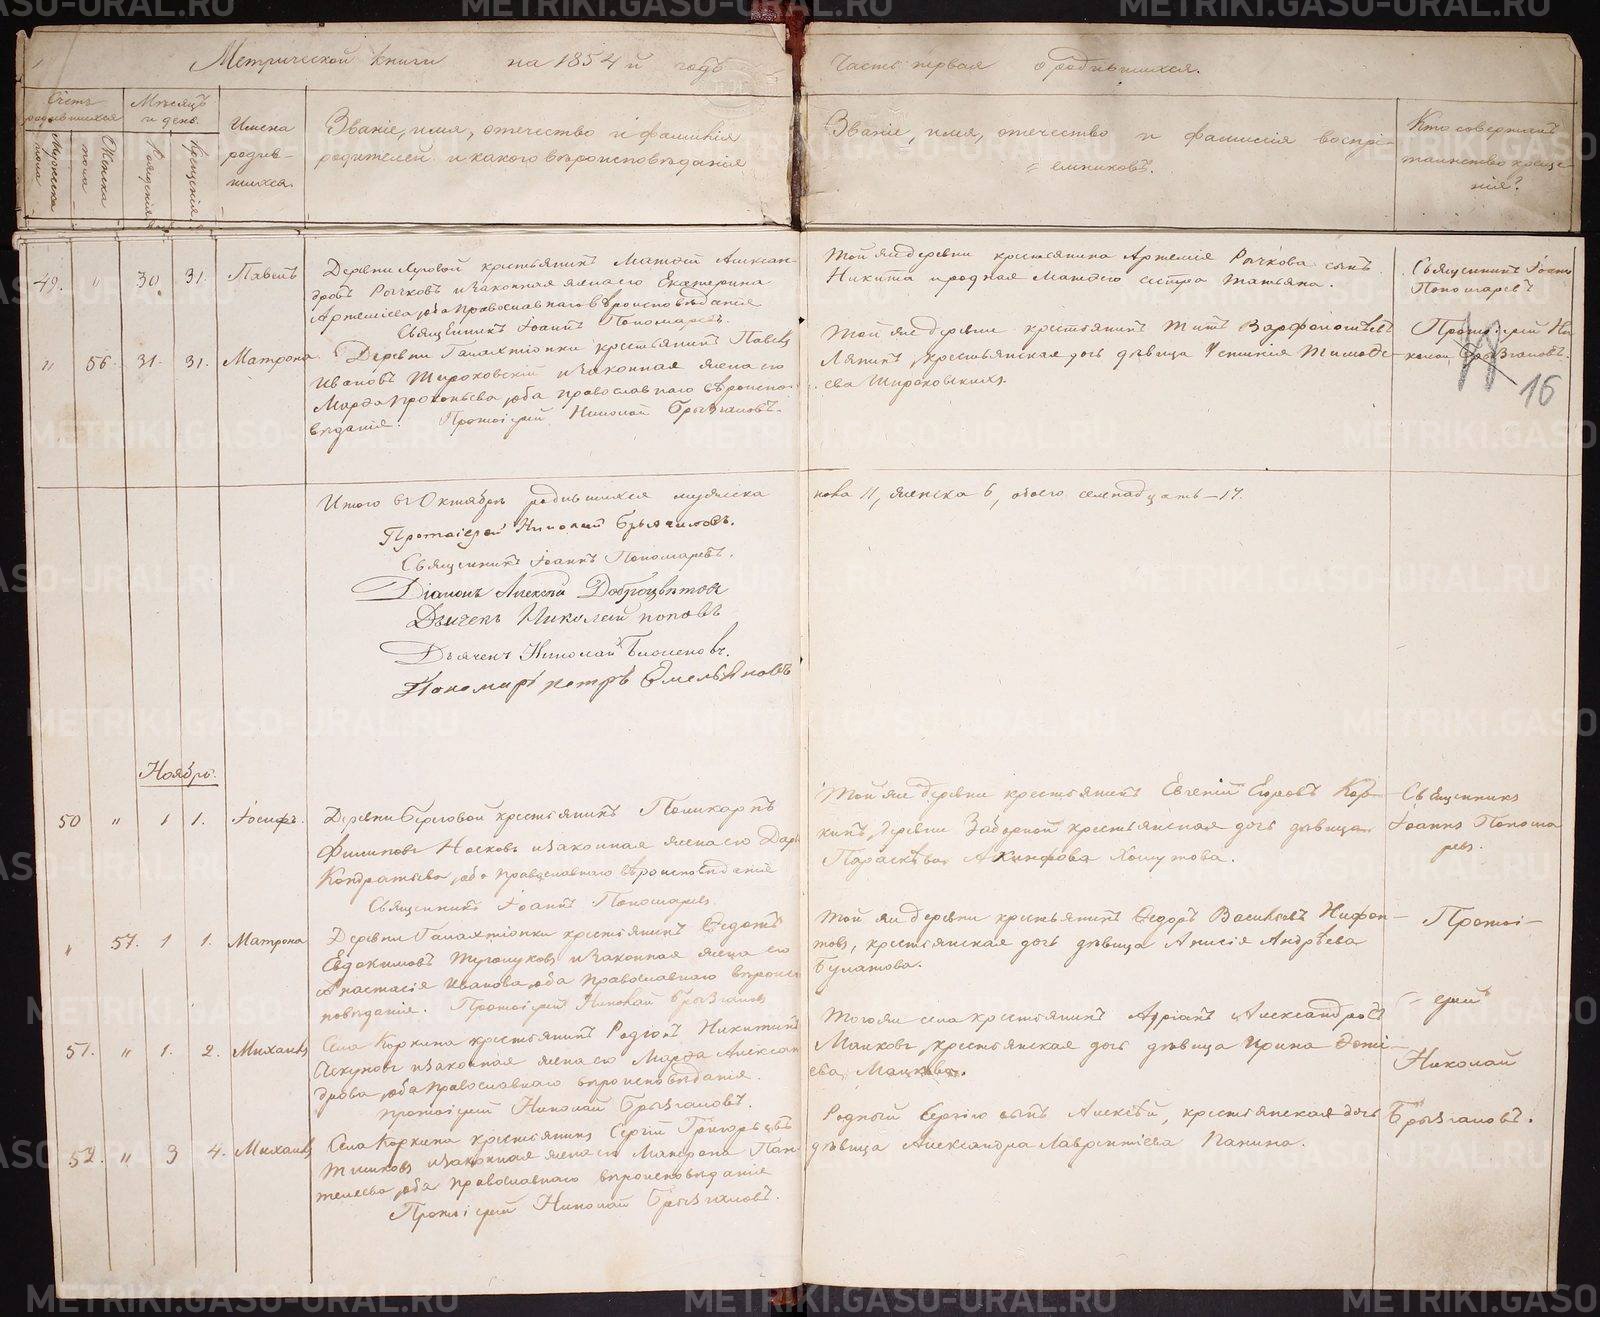 Метрической книги на 1854й годъ
Часть первая о родившихся.
Счетъ родившихся
Мѣсяцъ и день.
Мужеска пола
Женска пола
Рожденія
Крещенія
Имена родив-
шихся.
Званіе, имя, отечество и фамилія
родителей и какого вѣроисповѣданія
Званіе, имя, отечество и фамилія воспрі-
емниковъ.
Кто совершалъ
таинство креще-
нія?
49. " 30. 31. Павелъ
Деревни Луговой крестьянинъ Матвей Алексан-
дровъ Рычковъ и законная жена его Екатерина
Артемьева, оба православнаго вѣроисповѣданія
Священникъ Іоаннъ Пономаревъ.
Той же деревни крестьянина Артемія Рычкова сынъ
Никита и родная Матвею сестра Татьяна.
Священникъ Іоаннъ
Пономаревъ
" 56. 31. 31. Матрона.
Деревни Галактіонки крестьянинъ Павелъ
Ивановъ Широковскій и законная жена его
Марфа Прокопьева, оба православнаго вѣроиспо-
вѣданія. Протоіерей Николай Брызгаловъ.
Той же деревни крестьянинъ Титъ Варфоломеевъ
Ляпинъ, крестьянская дочь дѣвица Устинія Тимофе-
ева Широковскихъ.
Протоіерей Ни-
колай Брызгаловъ.
16
Итого въ Октябрѣ родившихся мужеска
пола 11, женска 6, обоего семнадцать - 17.
Протоіерей Николай Брызгаловъ.
Священникъ Іоаннъ Пономаревъ.
Діаконъ Алексѣй Доброцвѣтовъ
Дьячекъ Николай Поповъ
Дьячекъ Николай
Пономарь Петръ Емельяновъ
Ноябрь.
50 " 1 1. Іосифъ.
Деревни Береговой крестьянинъ Поликарпъ
Филиповъ Носковъ и законная жена его Дарья
Кондратьева, оба православнаго вѣроисповѣданія
Священникъ Іоаннъ Пономаревъ.
Той же деревни крестьянинъ Евгеній Егоровъ Кор-
кинъ, деревни Заборной крестьянская дочь дѣвица
Параскѣва Акинфова Хомутова.
Священникъ
Іоаннъ Понома
ревъ.
" 57. 1 1. Матрона
Деревни Галактіонки крестьянинъ Федотъ
Евдокимовъ и законная жена его
Анастасія Иванова, оба православнаго вѣроис-
повѣданія. Протоіерей Николай Брызгаловъ
Той же деревни крестьянинъ Федоръ Васильевъ Нифон-
товъ, крестьянская дочь дѣвица Анисія Андрѣева
Булатова.
Протоі-
ерей
51. " 1. 2. Михаилъ
Села Коркина крестьянинъ Родіонъ Никитинъ
и законная жена его Марфа Алексан
дрова, оба православнаго вѣроисповѣданія.
Протоіерей Николай Брызгаловъ.
Того же села крестьянинъ Адріанъ Александровъ
Маиковъ, крестьянская дочь дѣвица Ирина
ева
Николай
52. " 3 4. Михаилъ
Села Коркина крестьянинъ Сергій Григорьевъ
и законная жена его Матрона Пан-
телеева, оба православнаго вѣроисповѣданія
Протоіерей Николай Брызгаловъ.
Родный Сергію сынъ Алексѣй, крестьянская дочь
дѣвица Александра Лаврентіева Панина.
Брызгаловъ.
METRIKI.GASO-URAL.RU